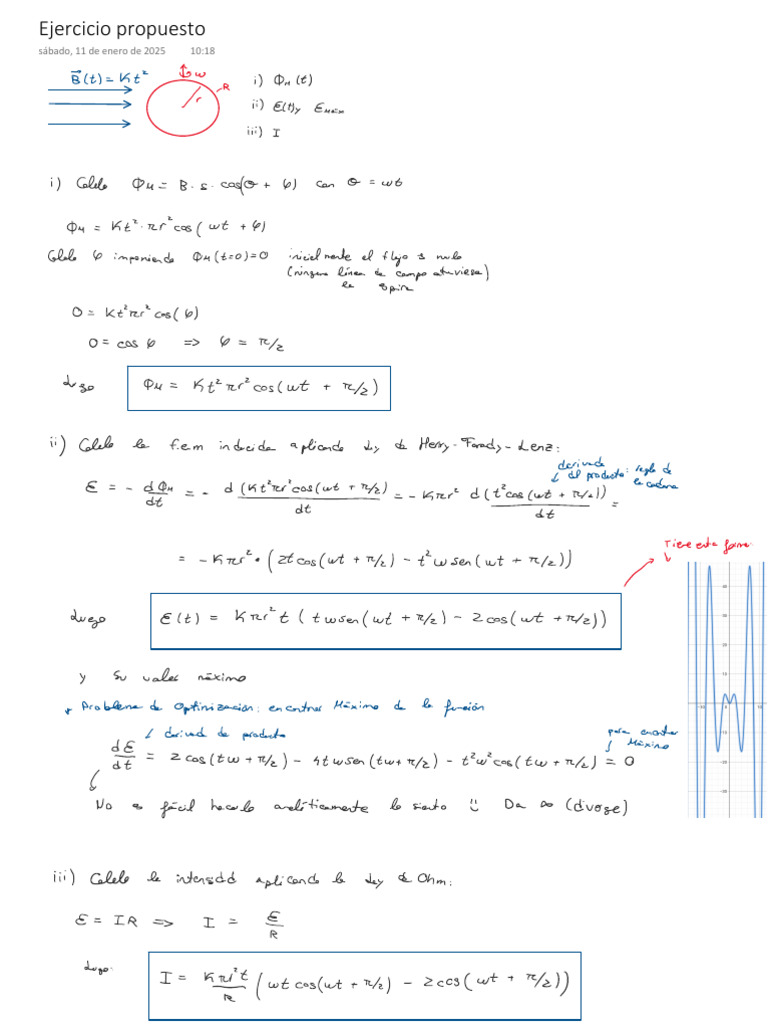 Ejercicio propuesto
sábado, 11 de enero de 2025 10:18
B⃗(t) = Kt²
ω
R
r
i) Φᴍ(t)
ii) ε(t) y εmáx
iii) I
i) Calculo Φᴍ = B · s · cos(θ + φ) con θ = ωt
Φᴍ = Kt² · πr² cos(ωt + φ)
Calculo φ imponiendo Φᴍ(t=0)=0 inicialmente el flujo es nulo
(ninguna línea de campo atraviesa)
la espira
0 = Kt²πr² cos(φ)
0 = cos φ => φ = π/2
Luego Φᴍ = Kt²πr² cos(ωt + π/2)
ii) Calculo la f.e.m inducida aplicando Ley de Henry-Faraday-Lenz:
derivada
del producto: regla de
la cadena
ε = - dΦᴍ/dt = - d(Kt²πr²cos(ωt + π/2))/dt = -Kπr² d(t²cos(ωt + π/2))/dt =
= -Kπr² · (2t cos(ωt + π/2) - t²ω sen(ωt + π/2))
Tiene esta forma:
Luego ε(t) = Kπr²t (tω sen(ωt + π/2) - 2cos(ωt + π/2))
y su valor máximo
* Problema de Optimización: encontrar Máximo de la función
derivada de producto
para encontrar
Máximo
dε/dt = 2cos(tω + π/2) - 4tω sen(tω + π/2) - t²ω² cos(tω + π/2) = 0
No es fácil hacerlo analíticamente lo siento Da ∞ (diverge)
iii) Calculo la intensidad aplicando la Ley de Ohm:
ε = IR => I = ε/R
Luego:
I = Kπr²t/R (ωt cos(ωt + π/2) - 2cos(ωt + π/2))